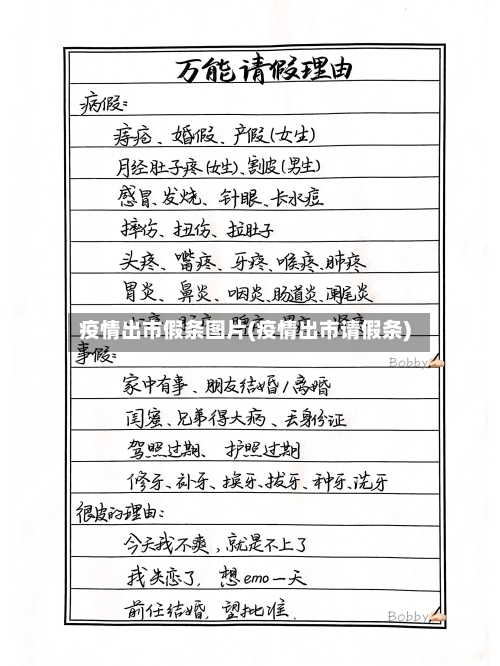 万能请假理由
病假:
痔疮、婚假、产假(女生)
月经肚子疼(女生)、割皮(男生)
感冒、发烧、针眼、长水痘
摔伤、扭伤、拉肚子
头疼、嘴疼、牙疼、喉疼、肺疼
胃炎、鼻炎、咽炎、肠道炎、阑尾炎
疫情出市假条图片(疫情出市请假条)
事假:
Bobby
家中有事、朋友结婚/离婚
闺蜜、兄弟得大病、丢身份证
驾照过期、护照过期
修牙、补牙、换牙、拔牙、种牙、洗牙
很皮的理由:
今天我不爽,就是不上了
我失恋了,想emo一天
前任结婚,望批准.
Bobby